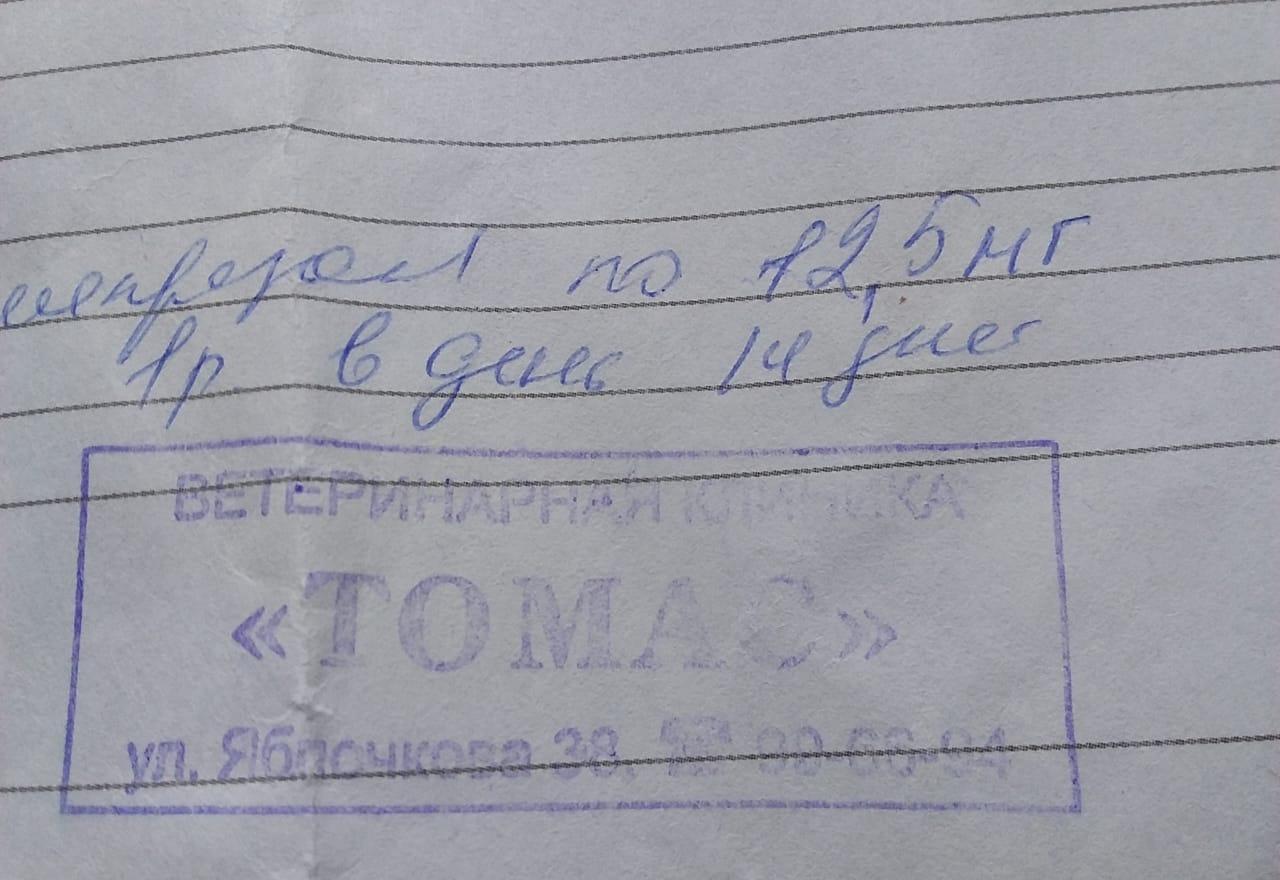 мепразол по 12,5 мг
1р в день 14 дней
ВЕТЕРИНАРНАЯ КЛИНИКА
«ТОМАС»
ул. Яблочкова 38. ☎